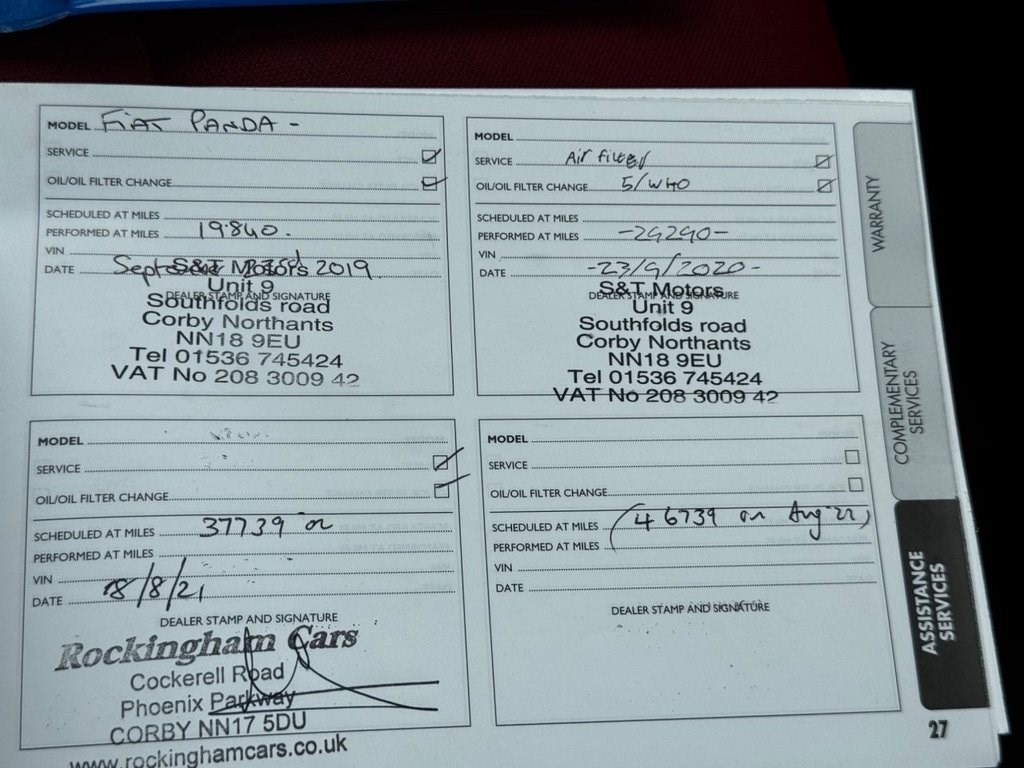 MODEL FiAT PANDA -
SERVICE
OIL/OIL FILTER CHANGE
SCHEDULED AT MILES
PERFORMED AT MILES 19840.
VIN
DATE 2019
S&T Motors
DEALER STAMP AND SIGNATURE
Unit 9
Southfolds road
Corby Northants
NN18 9EU
Tel 01536 745424
VAT No 208 3009 42
MODEL
SERVICE Air filter
OIL/OIL FILTER CHANGE 5/W40
SCHEDULED AT MILES
PERFORMED AT MILES -29290-
VIN
DATE -23/9/2020-
S&T Motors
DEALER STAMP AND SIGNATURE
Unit 9
Southfolds road
Corby Northants
NN18 9EU
Tel 01536 745424
VAT No 208 3009 42
MODEL
SERVICE
OIL/OIL FILTER CHANGE
SCHEDULED AT MILES 37739
PERFORMED AT MILES
VIN
DATE 18/8/21
DEALER STAMP AND SIGNATURE
Rockingham Cars
Cockerell Road
Phoenix Parkway
CORBY NN17 5DU
www.rockinghamcars.co.uk
MODEL
SERVICE
OIL/OIL FILTER CHANGE
SCHEDULED AT MILES (46739 on Aug 22)
PERFORMED AT MILES
VIN
DATE
DEALER STAMP AND SIGNATURE
WARRANTY
COMPLEMENTARY
SERVICES
ASSISTANCE
SERVICES
27